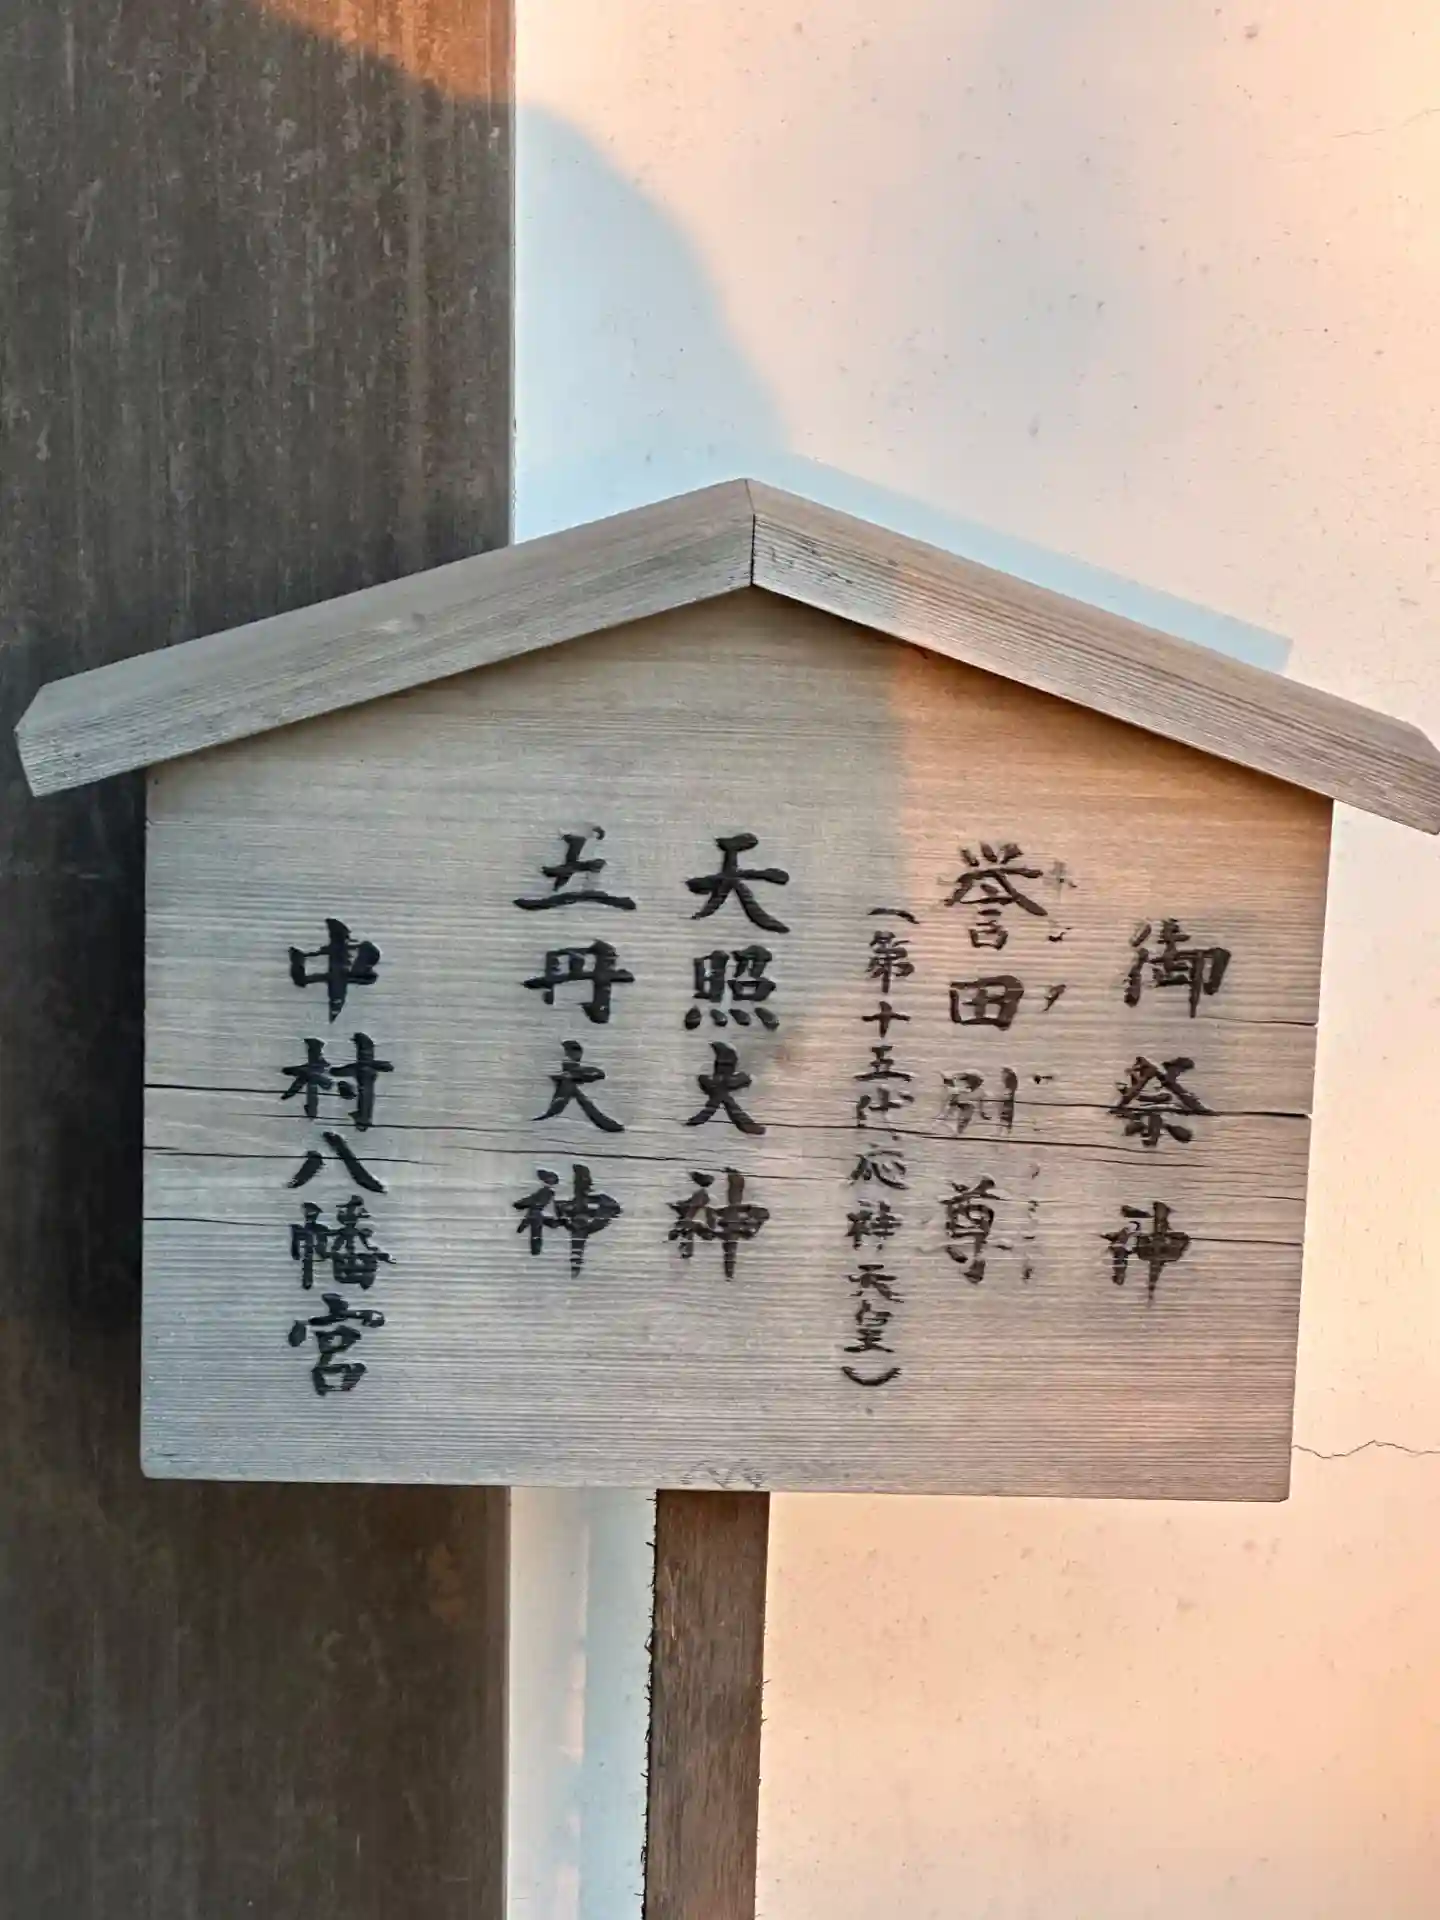 御祭神
誉田別尊
(第十五代応神天皇)
天照大神
大神
中村八幡宮